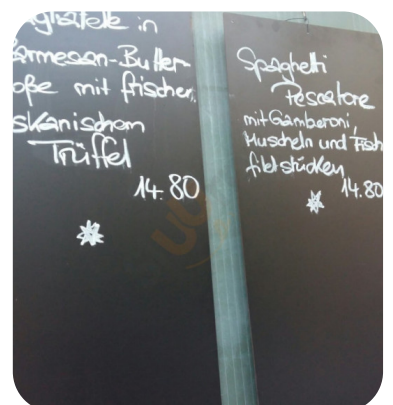 gliatelle in
armesan-Butter-
oße mit frischen
skanischem
Trüffel
14.80
Spaghetti
Pescatore
mit Gamberoni,
Muscheln und Fisch
filetstücken
14.80